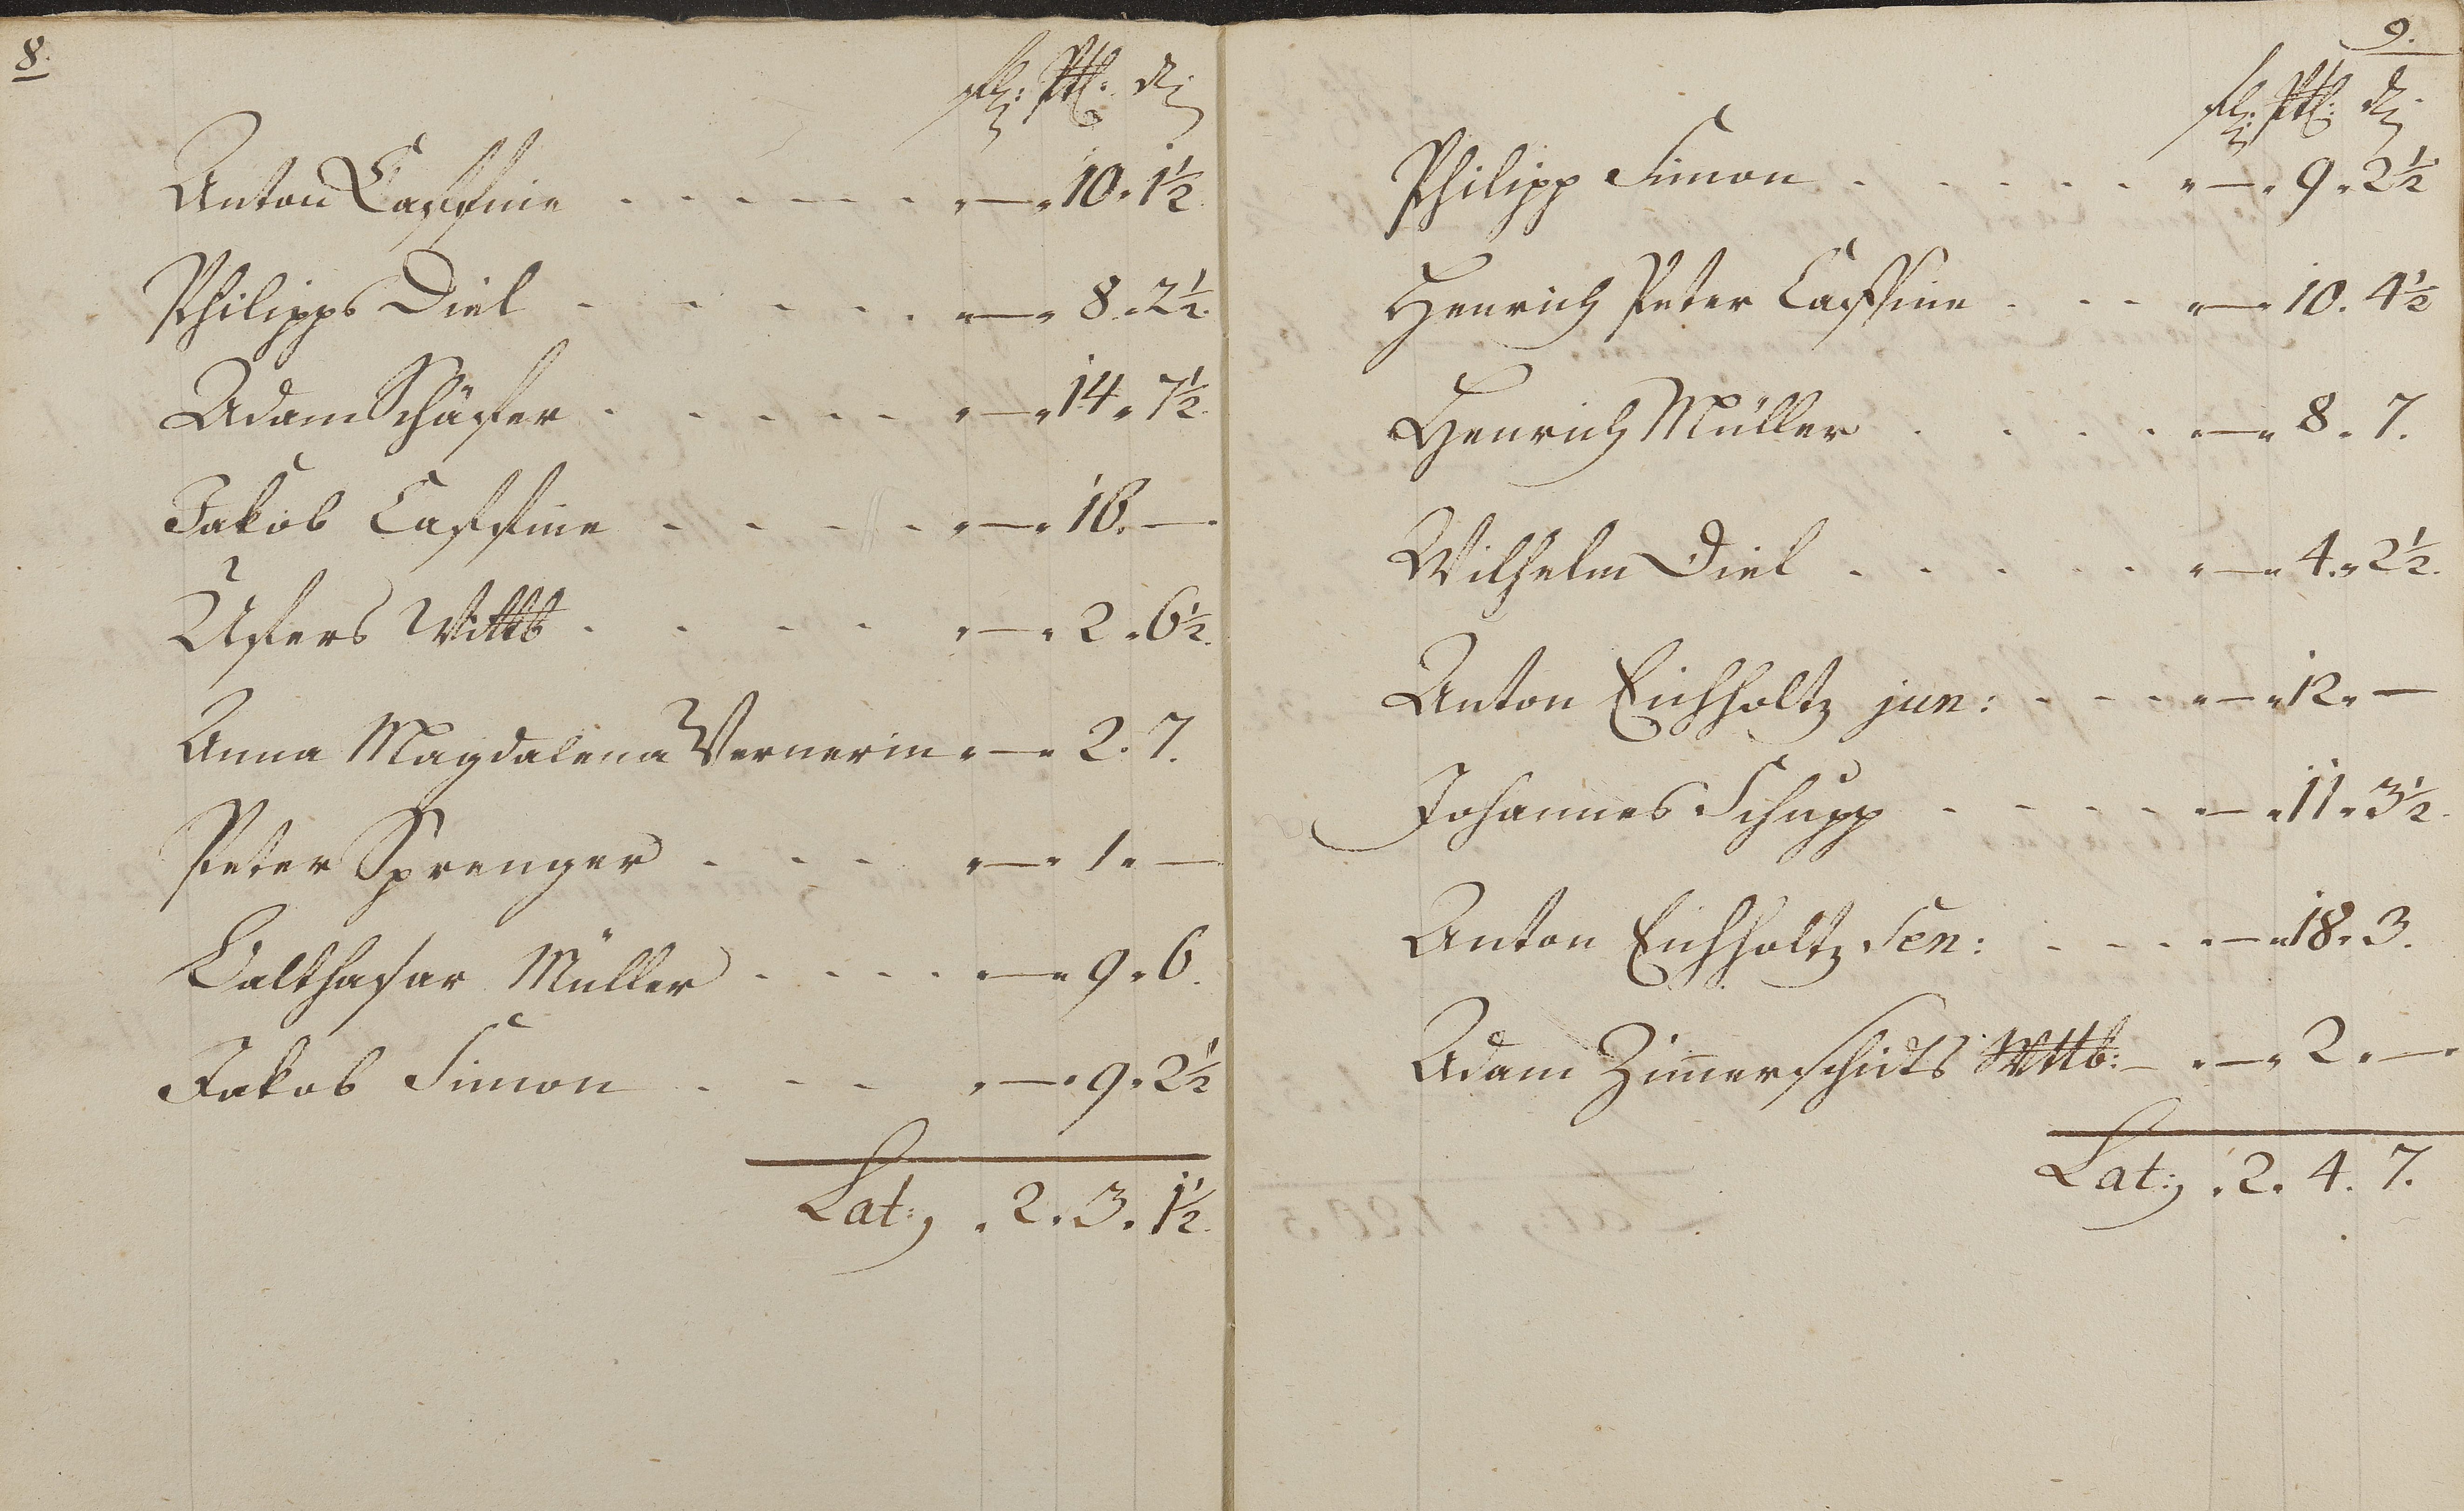 8.
fl: Ptz: d:
Anton Cassine . . . . . . . „—„ 10 „ 1½.
Philipps Diel . . . . . . „—„ 8 „ 2½.
Adam Schäfer . . . . . „—„ 14 „ 7½.
Jakob Cassine . . . . . „—„ 16. —
Wittb . . . . „—„ 2 „ 6½.
Anna Magdalena Vernerin „—„ 2. 7.
Peter Sprenger . . . „—„ 1 „ —
Balthasar Müller . . . . „—„ 9 „ 6.
Jakob Simon . . . „—„ 9 „ 2½
Lat: „ 2 „ 3 „ 1½.
9.
fl: Ptz: d:
Philipp Simon . . . . . „—„ 9 „ 2½
Henrich Peter Cassine . . . „—„ 10. 4½
Henrich Müller . . . . „—„ 8 „ 7.
Wilhelm Diel . . . . . „—„ 4 „ 2½.
Anton Eichholtz jun: . . . „—„ 12 „ —
Johannes Schupp . . . . . „—„ 11 „ 3½.
Anton Eichholtz Sen: . . . „—„ 18 „ 3.
Adam Zimerschidts Wttb: — „—„ 2 „ —
Lat: „ 2 „ 4. 7.